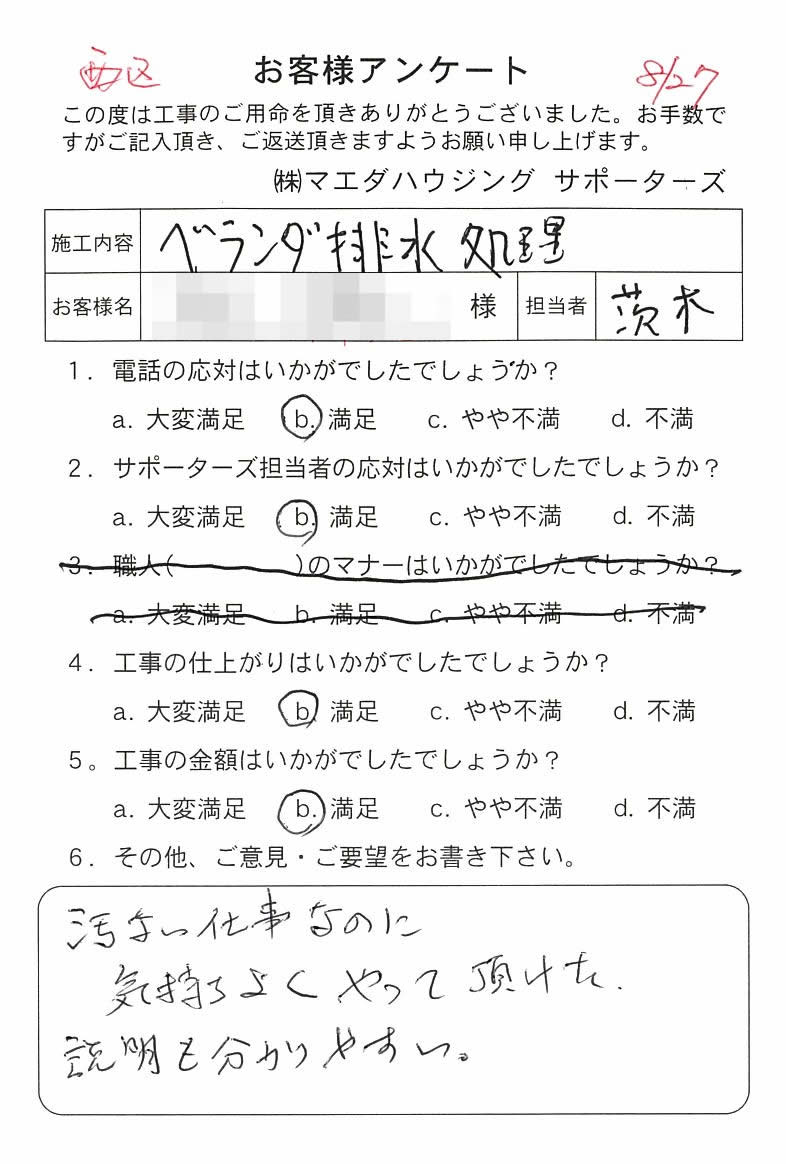 西区 お客様アンケート 8/27
この度は工事のご用命を頂きありがとうございました。お手数で
すがご記入頂き、ご返送頂きますようお願い申し上げます。
㈱マエダハウジング サポーターズ
施工内容 ベランダ排水処理
お客様名 様 担当者 茨木
1. 電話の応対はいかがでしたでしょうか?
a. 大変満足 b. 満足 c. やや不満 d. 不満
2. サポーターズ担当者の応対はいかがでしたでしょうか?
a. 大変満足 b. 満足 c. やや不満 d. 不満
3. 職人( )のマナーはいかがでしたでしょうか?
a. 大変満足 b. 満足 c. やや不満 d. 不満
4. 工事の仕上がりはいかがでしたでしょうか?
a. 大変満足 b. 満足 c. やや不満 d. 不満
5。工事の金額はいかがでしたでしょうか?
a. 大変満足 b. 満足 c. やや不満 d. 不満
6. その他、ご意見・ご要望をお書き下さい。
汚ない仕事なのに
気持ちよくやって頂けた.
説明も分かりやすい。